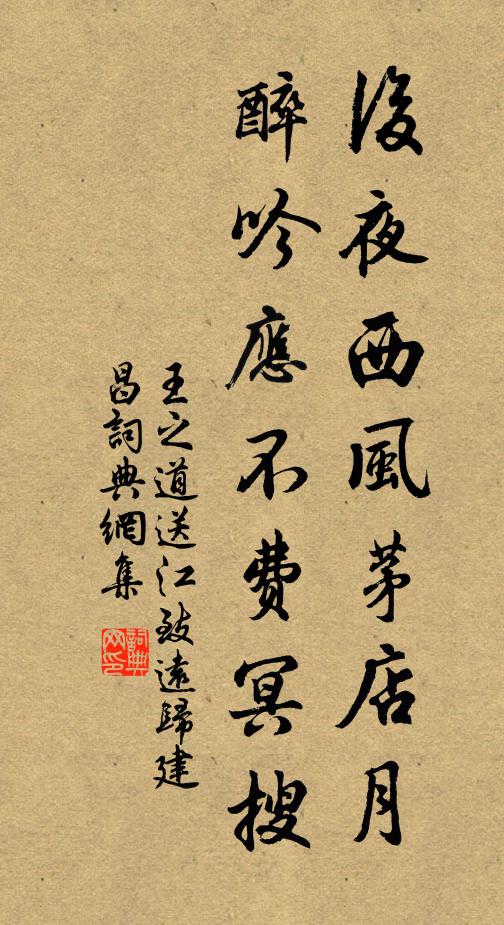 後夜西風茅店月
醉吟應不費冥搜
王之道送江致遠歸建
昌詞典網集
詞典
网印